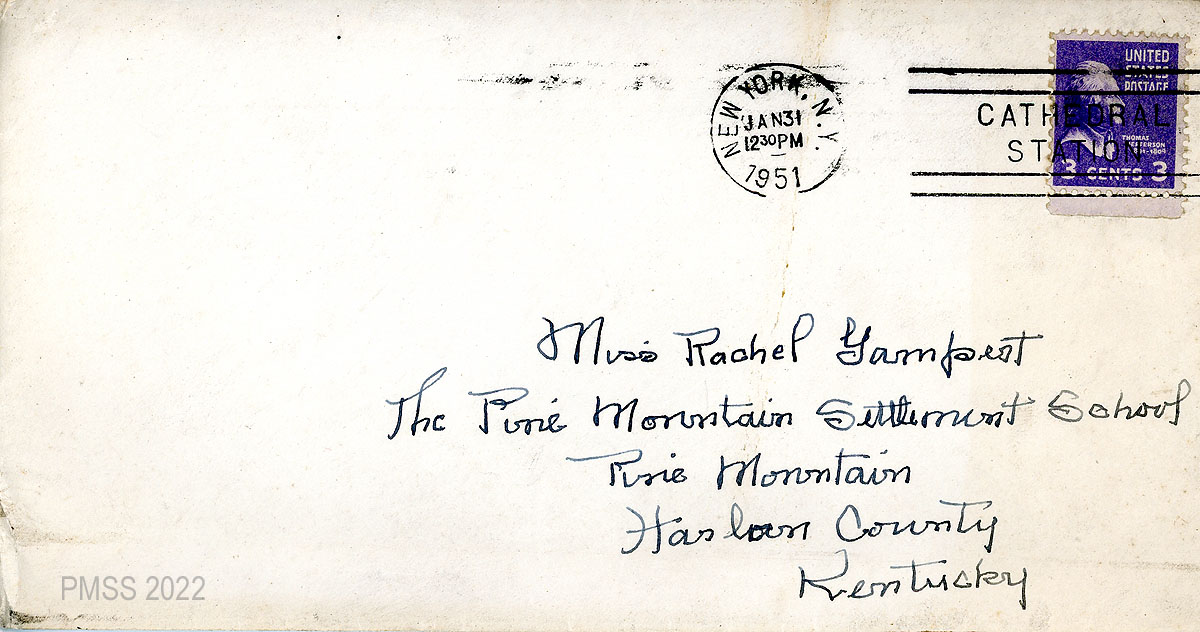 NEW YORK, N.Y.
JAN 31
12 30 PM
1951
CATHEDRAL
STATION
UNITED
STATES
POSTAGE
THOMAS
JEFFERSON
3 CENTS 3
Miss Rachel Gampert
The Pine Mountain Settlement School
Pine Mountain
Harlan County
Kentucky
PMSS 2022